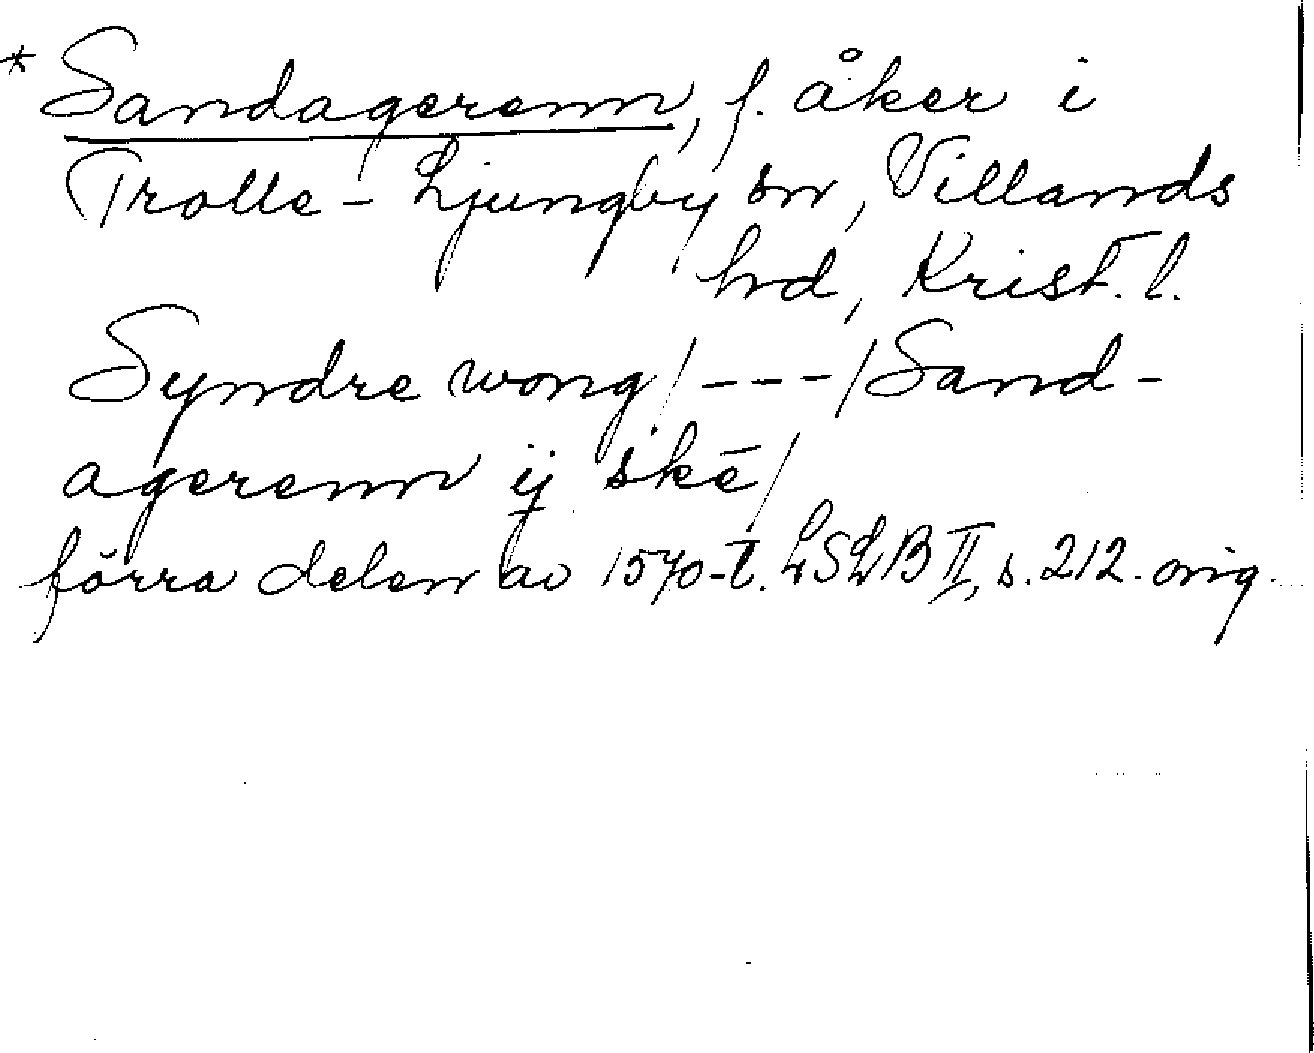 * Sandagerenn, f. åker i
Trolle-Ljungby sn, Villands
hd, Krist. l.
Syndre wong/---/Sand-
agerenn ij skē/
förra delen av 1570-t. LSLB II, s. 212. orig.